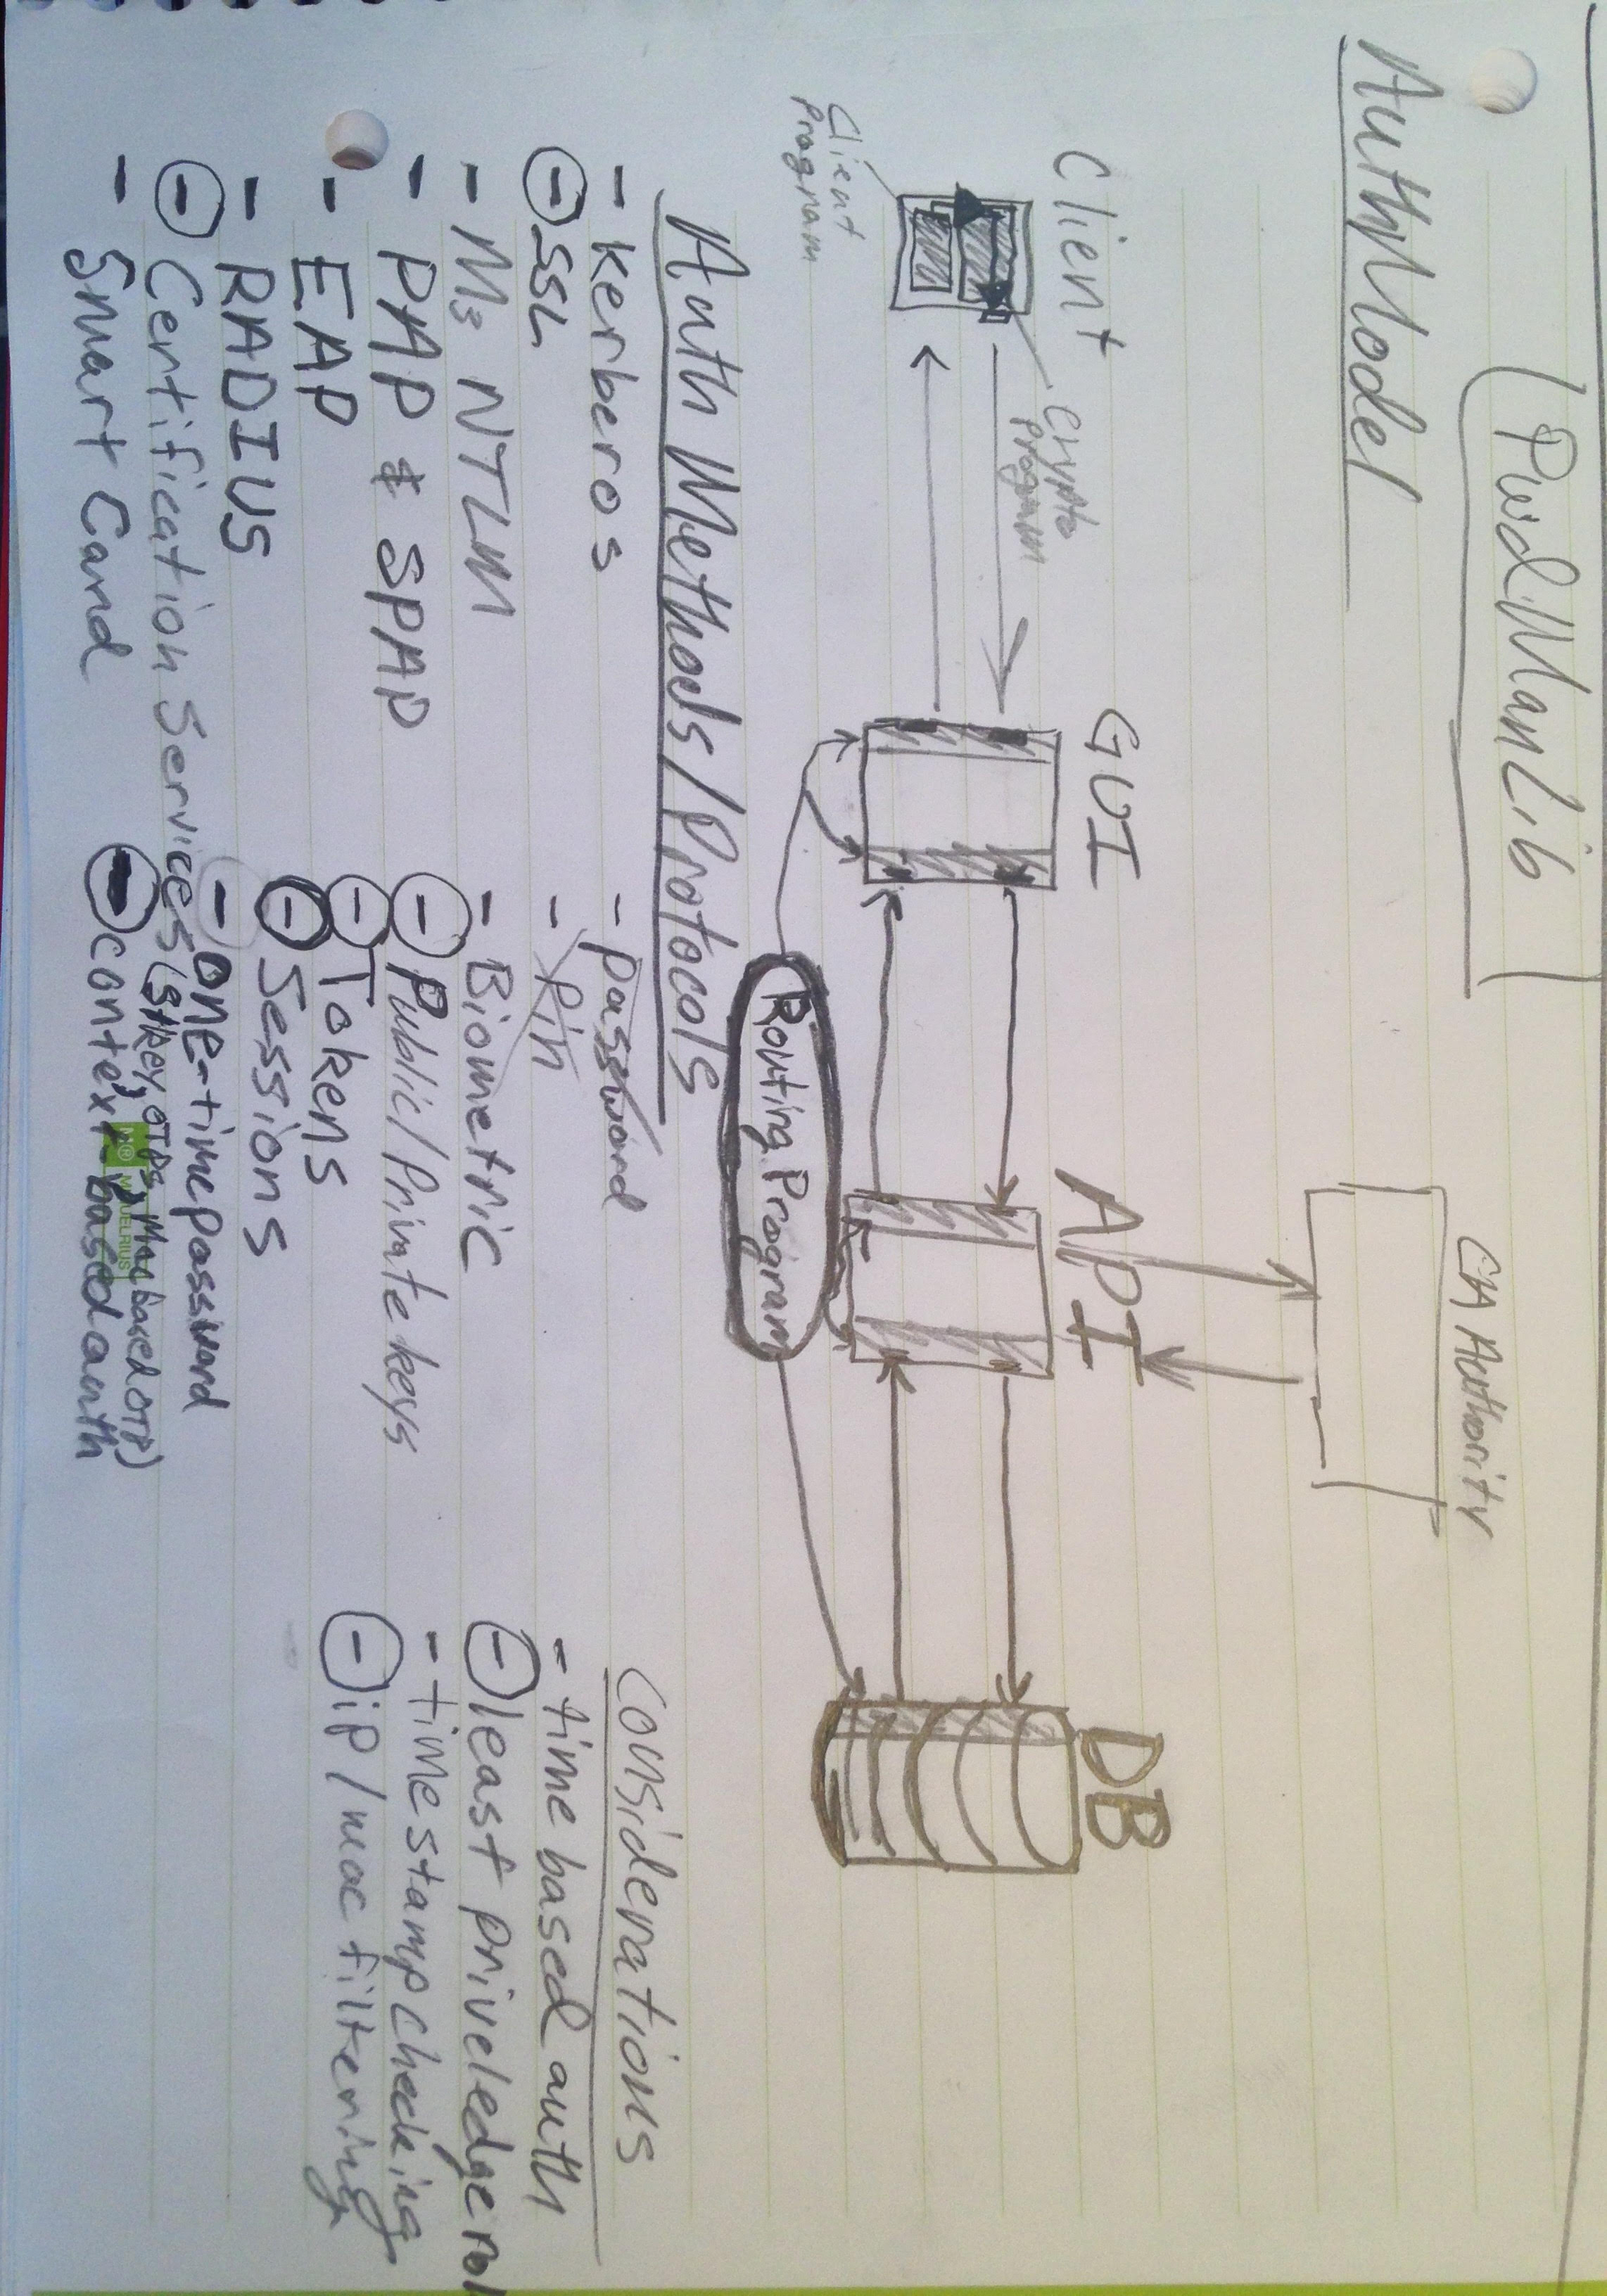 PwdManLib
Auth Model
CA Authority
Client
GUI
API
DB
Crypto
Program
Client
Program
Routing Program
Auth Methods/Protocols
- Kerberos
- SSL
- Ms NTLM
- PAP & SPAP
- EAP
- RADIUS
- Certification Services
- Smart Card
- password
- Pin
- Biometric
- Public/Private keys
- Tokens
- Sessions
- One-time password
(S/Key, OTPs, Mac based OTP)
- context-based auth
Considerations
- time based auth
- least priveledge
- time stamp checking
- ip/mac filtering